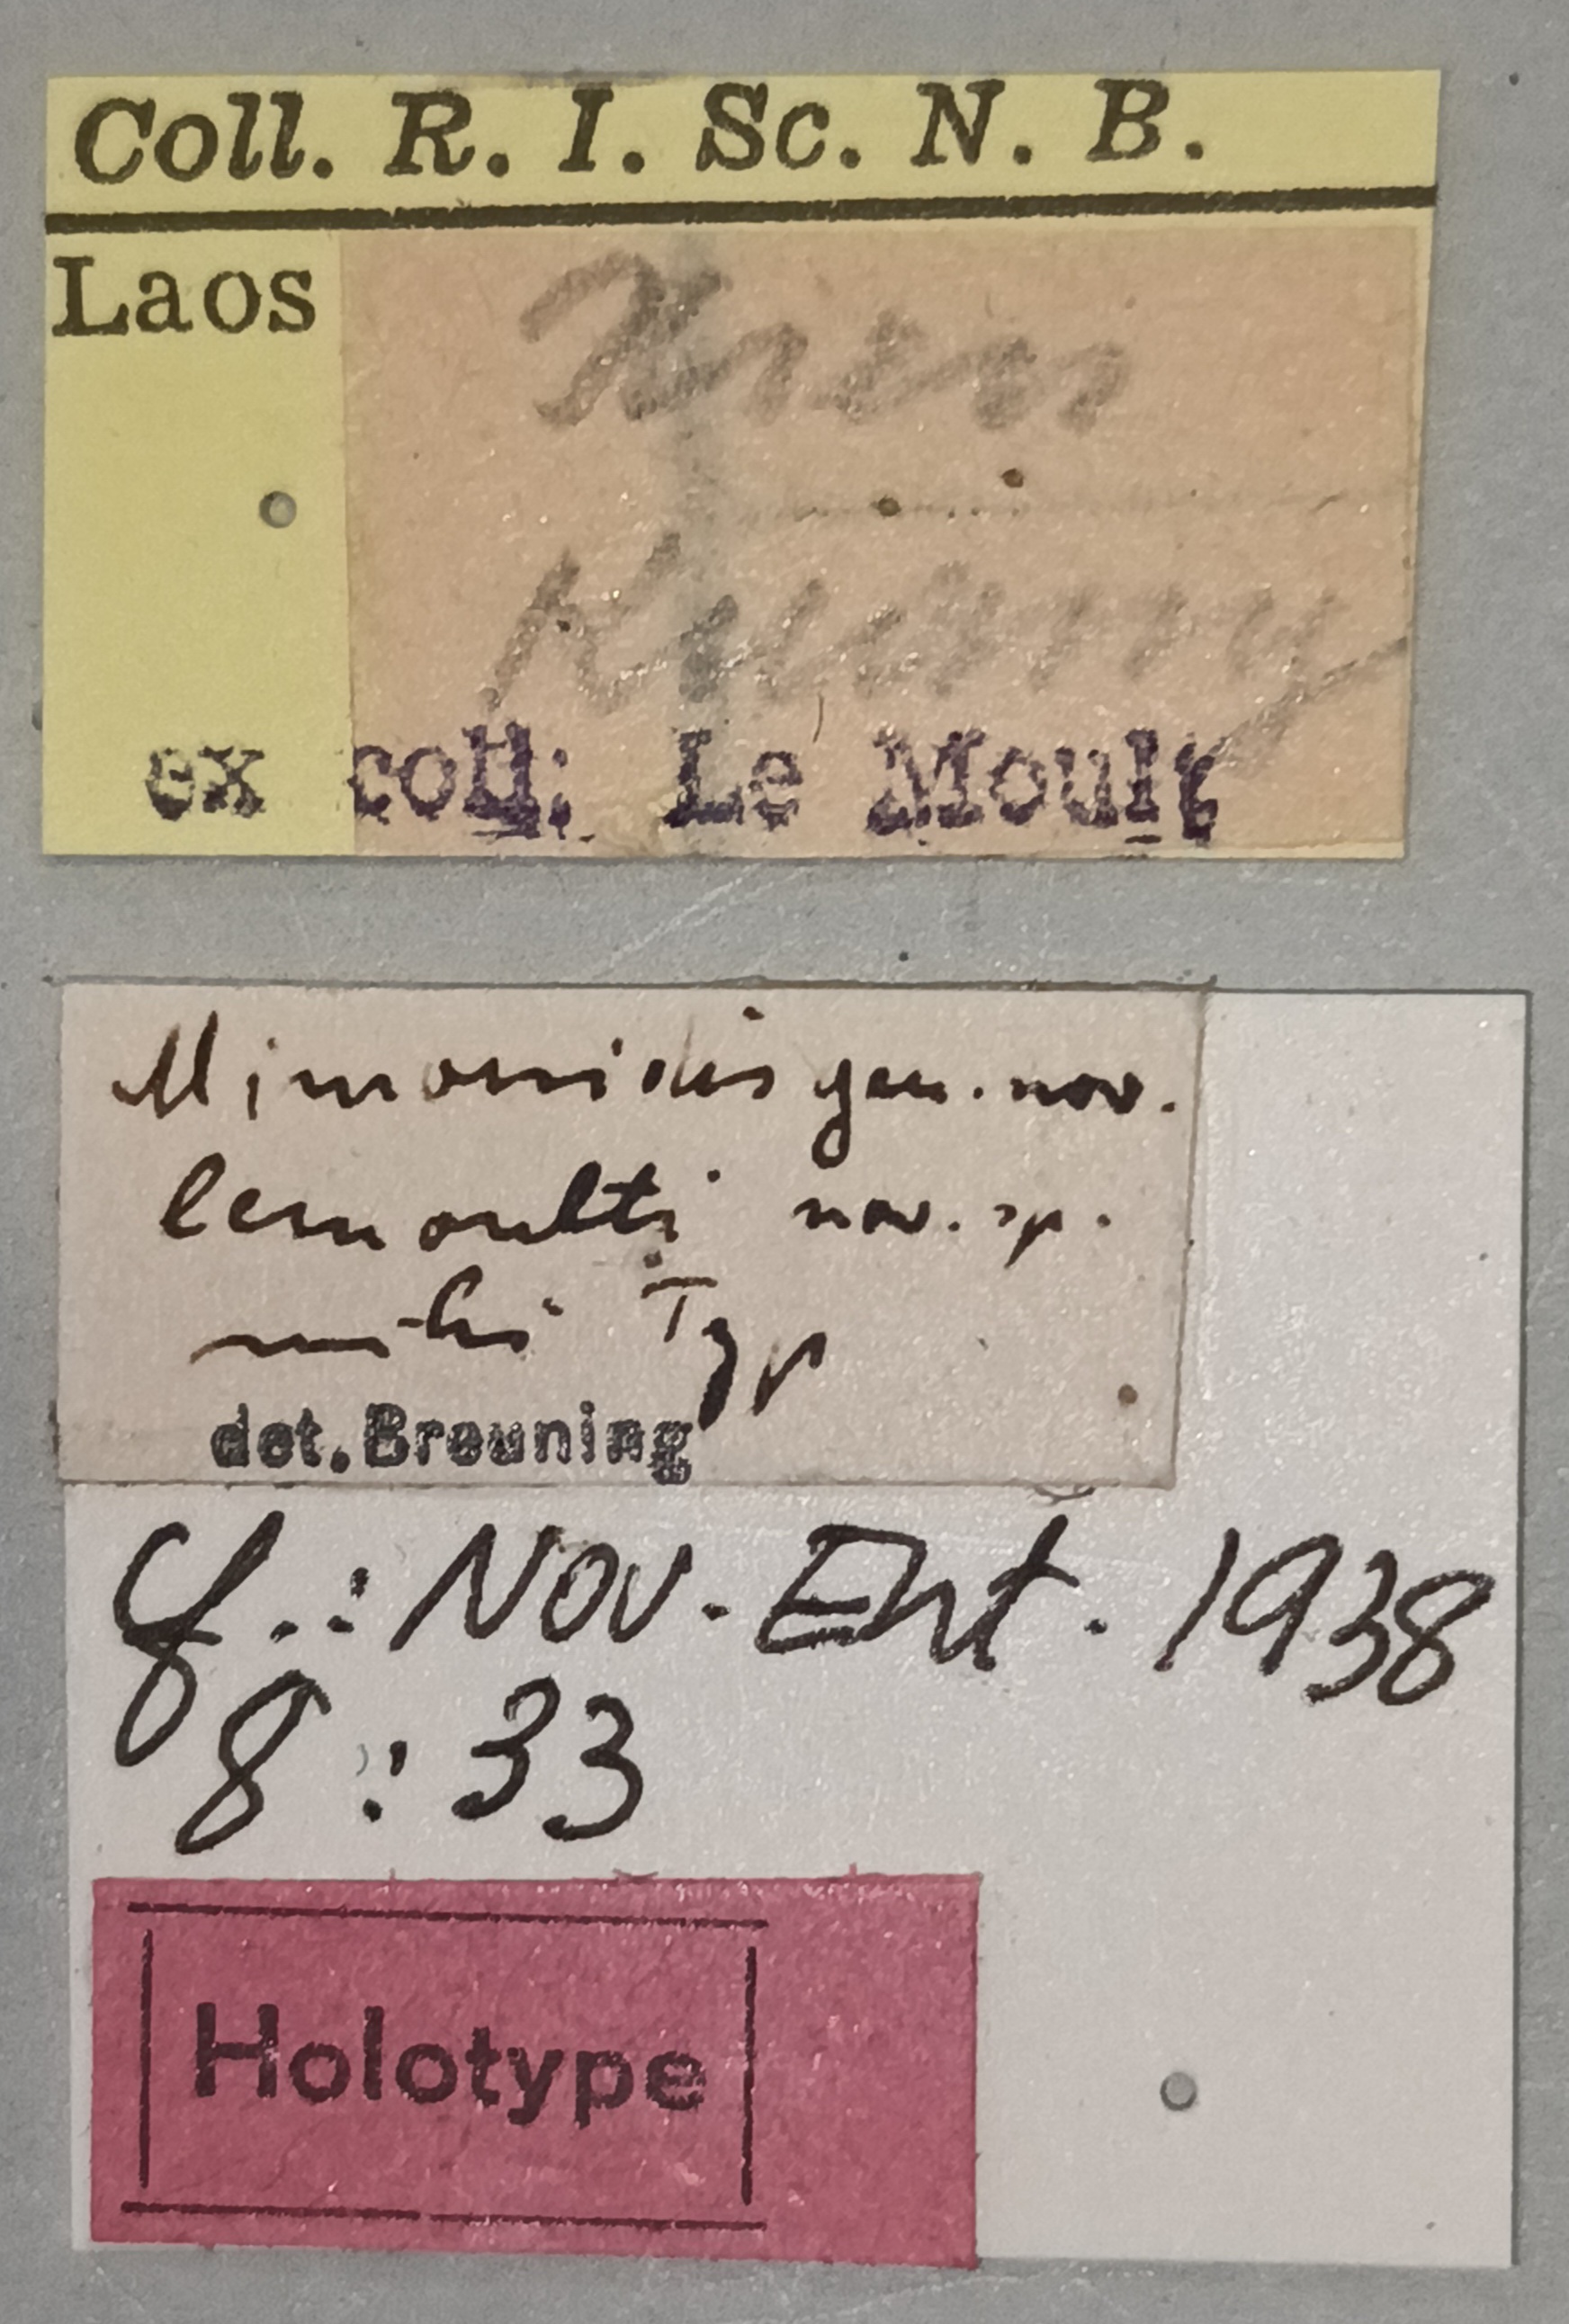 Coll. R. I. Sc. N. B.
Laos
Xien
ex coll: Le Moult
Mimovitalis gen. nov.
lemoulti nov. sp.
mihi Typ
det. Breuning
Cf.: Nov. Ent. 1938
8 : 33
Holotype